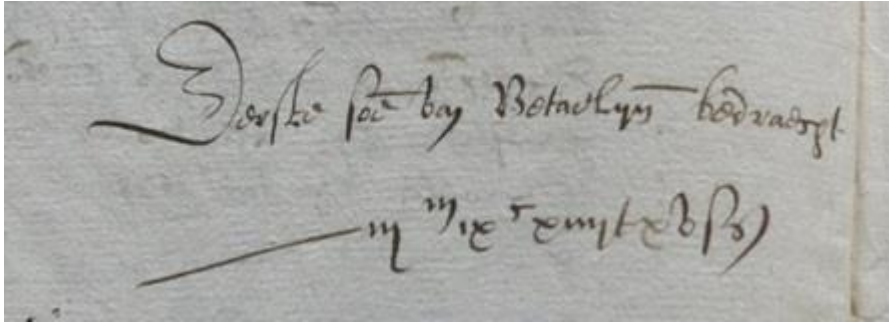 Derste soe van Betaelyn bedraecht
iij m ix c xiiij t xv s